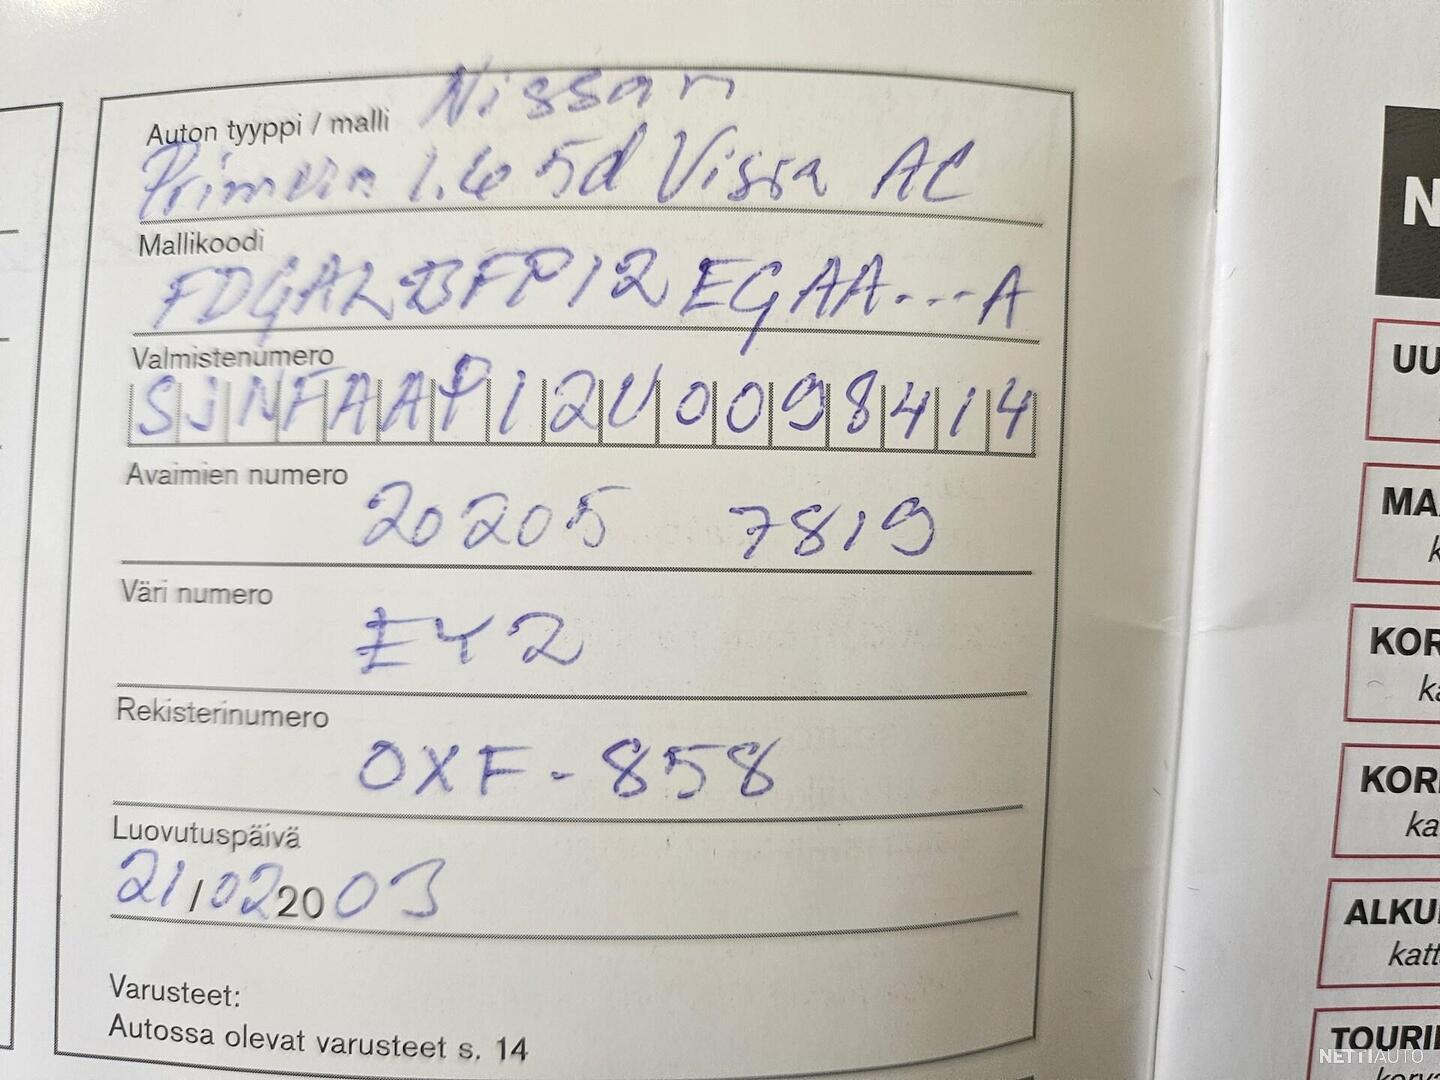 Nissan
Auton tyyppi / malli
Primera 1.6 5d Visia AC
Mallikoodi
FDGALBFP12EGAA...A
Valmistenumero
SJNFAAP12U0098414
Avaimien numero
20205 7819
Väri numero
EY2
Rekisterinumero
OXF-858
Luovutuspäivä
21/022003
Varusteet:
Autossa olevat varusteet s. 14
N
UU
MA
k
KOR
ka
KOR
ka
ALKU
katt
TOURI
NETTIAUTO